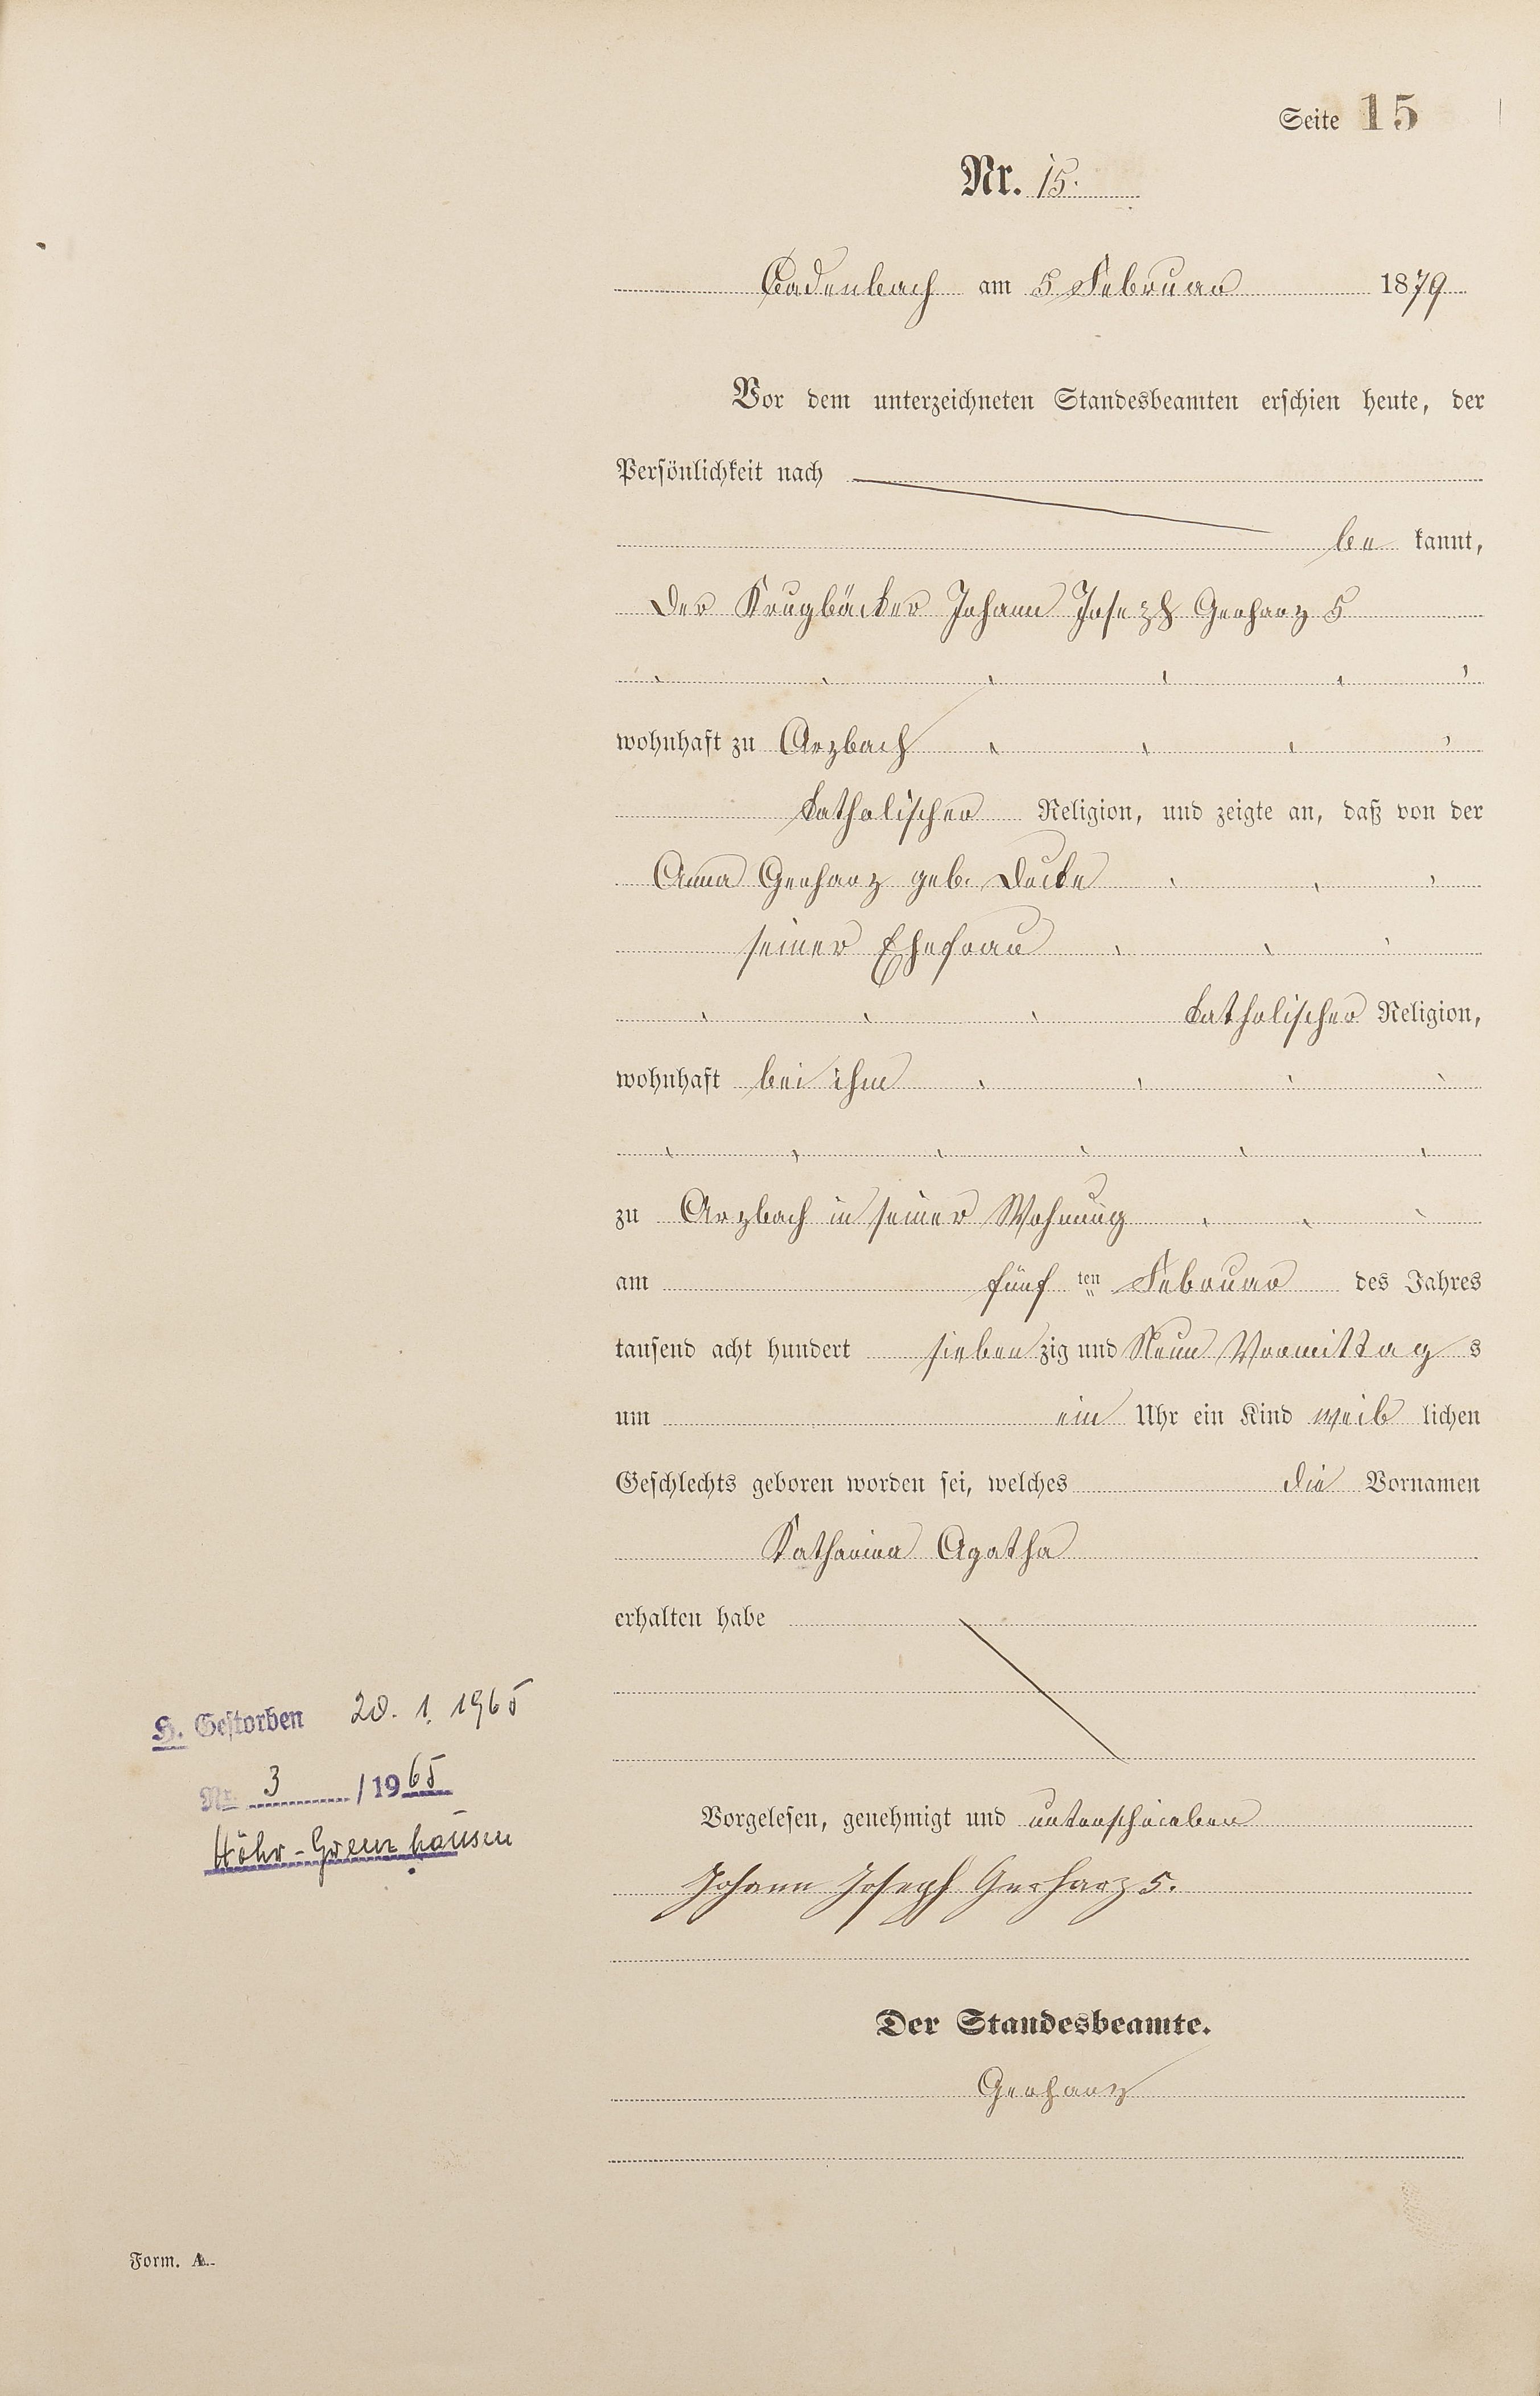 Seite 15
Nr. 15.
Cadenbach am 5 Februar 1879
Vor dem unterzeichneten Standesbeamten erschien heute, der
Persönlichkeit nach
be kannt,
Der Krugbäcker Johann Joseph Gerharz 5
wohnhaft zu Arzbach
katholischer Religion, und zeigte an, daß von der
Anna Gerharz geb.
seiner Ehefrau
katholischer Religion,
wohnhaft bei ihm
zu Arzbach in seiner Wohnung
am fünf ten Februar des Jahres
tausend acht hundert sieben zig und Neun Vormittag s
um ein Uhr ein Kind weib lichen
Geschlechts geboren worden sei, welches die Vornamen
Katharina Agatha
erhalten habe
Vorgelesen, genehmigt und unterschrieben
Johann Joseph Gerharz 5.
Der Standesbeamte.
Gerharz
H. Gestorben 20. 1. 1965
Nr. 3 / 1965
Höhr-Grenzhausen
Form. A.